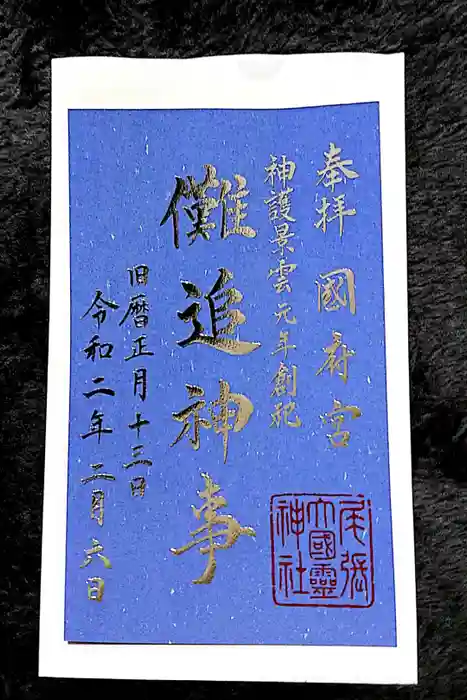 奉拝 國府宮
神護景雲元年創祀
儺追神事
旧暦正月十三日
令和二年 二月六日
尾張
大國靈
神社